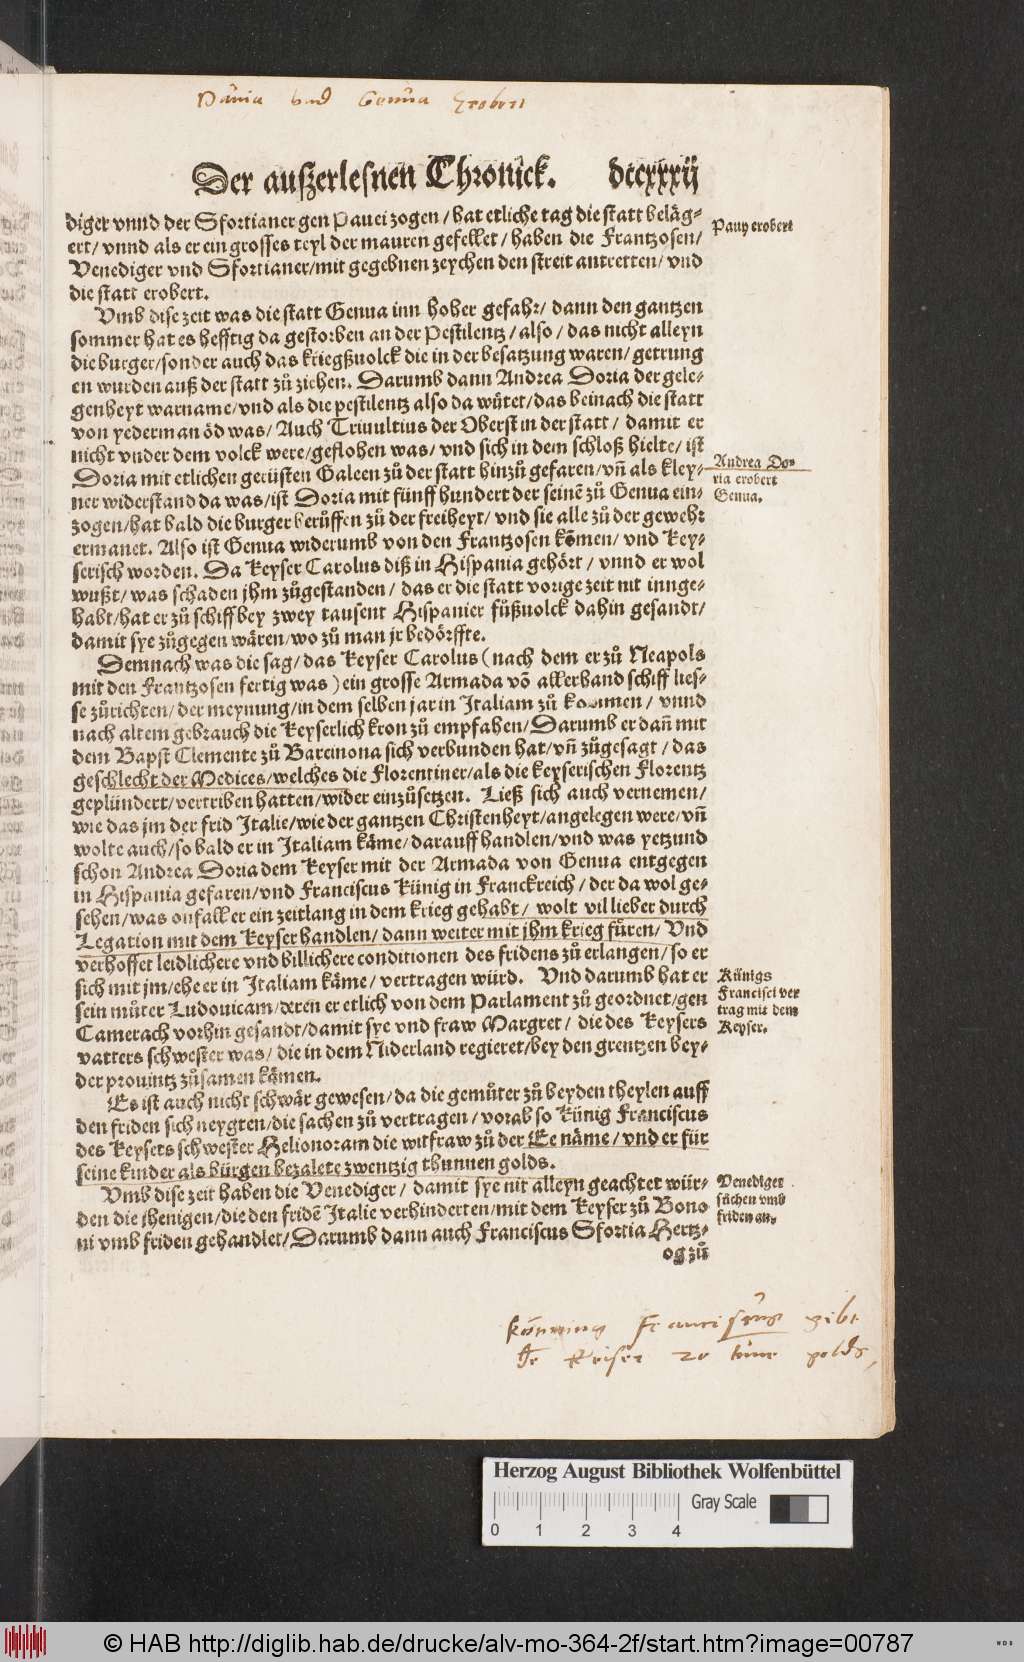 Pauia vnd Genua Erobert
Der außerlesnen Chronick. dccxxxij
diger vnnd der Sfortianer gen Pauei zogen / hat etliche tag die statt beläg-
ert / vnnd als er ein grosses teyl der mauren gefellet / haben die Frantzosen /
Venediger vnd Sfortianer / mit gegebnen zeychen den streit antretten / vnd
die statt erobert.
Pauy erobert
Vmb dise zeit was die statt Genua inn hoher gefahr / dann den gantzen
sommer hat es hefftig da gestorben an der Pestilentz / also / das nicht alleyn
die burger / sonder auch das kriegßuolck die in der besatzung waren / getrung
en wurden auß der statt zů ziehen. Darumb dann Andrea Doria der gele-
genheyt warname / vnd als die pestilentz also da wütet / das beinach die statt
von yederman öd was / Auch Triuultius der Oberst in der statt / damit er
nicht vnder dem volck were / geflohen was / vnd sich in dem schloß hielte / ist
Doria mit etlichen gerüsten Galeen zů der statt hinzů gefaren / vñ als kley-
ner widerstand da was / ist Doria mit fünff hundert der seinẽ zů Genua ein-
zogen / hat bald die burger berůffen zů der freiheyt / vnd sie alle zů der gewehr
ermanet. Also ist Genua widerumb von den Frantzosen kõmen / vnd Key-
serisch worden. Da Keyser Carolus diß in Hispania gehört / vnnd er wol
wußt / was schaden jhm zůgestanden / das er die statt vorige zeit nit innge-
habt / hat er zů schiff bey zwey tausent Hispanier fůßuolck dahin gesandt /
damit sye zůgegen wären / wo zů man jr bedörffte.
Andrea Do-
ria erobert
Genua.
Demnach was die sag / das Keyser Carolus (nach dem er zů Neapols
mit den Frantzosen fertig was) ein grosse Armada võ allerhand schiff lies-
se zůrichten / der meynung / in dem selben jar in Italiam zů kommen / vnnd
nach altem gebrauch die Keyserlich kron zů empfahen / Darumb er dañ mit
dem Bapst Clemente zů Barcinona sich verbunden hat / vñ zůgesagt / das
geschlecht der Medices / welches die Florentiner / als die keyserischen Florentz
geplündert / vertriben hatten / wider einzůsetzen. Ließ sich auch vernemen /
wie das jm der frid Italie / wie der gantzen Christenheyt / angelegen were / vñ
wolte auch / so bald er in Italiam käme / darauff handlen / vnd was yetzund
schon Andrea Doria dem Keyser mit der Armada von Genua entgegen
in Hispania gefaren / vnd Franciscus Künig in Franckreich / der da wol ge-
sehen / was onfall er ein zeitlang in dem krieg gehabt / wolt vil lieber durch
Legation mit dem Keyser handlen / dann weiter mit jhm krieg füren / Vnd
verhoffet leidlichere vnd billichere conditionen des fridens zů erlangen / so er
sich mit jm / ehe er in Italiam käme / vertragen würd. Vnd darumb hat er
sein můter Ludouicam / deren er etlich von dem Parlament zů geordnet / gen
Camerach vorhin gesandt / damit sye vnd fraw Margret / die des Keysers
vatters schwester was / die in dem Niderland regieret / bey den grentzen bey-
der prouintz zůsamen kämen.
Künigs
Francisci ver
trag mit dem
Keyser.
Es ist auch nicht schwär gewesen / da die gemůter zů beyden theylen auff
den friden sich neygten / die sachen zů vertragen / vorab so Künig Franciscus
des Keysers schwester Helionoram die witfraw zů der Ee näme / vnd er für
seine kinder als bürgen bezalete zwentzig thunnen golds.
Vmb dise zeit haben die Venediger / damit sye nit alleyn geachtet wür-
den die jhenigen / die den fridẽ Italie verhinderten / mit dem Keyser zů Bono
ni vmb friden gehandlet / Darumb dann auch Franciscus Sfortia Hertz-
og zů
Venediger
sůchen vmb
friden an.
könning Franciscus gibt
de Keiser 20 tune golds,
Herzog August Bibliothek Wolfenbüttel
Gray Scale
0 1 2 3 4
© HAB http://diglib.hab.de/drucke/alv-mo-364-2f/start.htm?image=00787